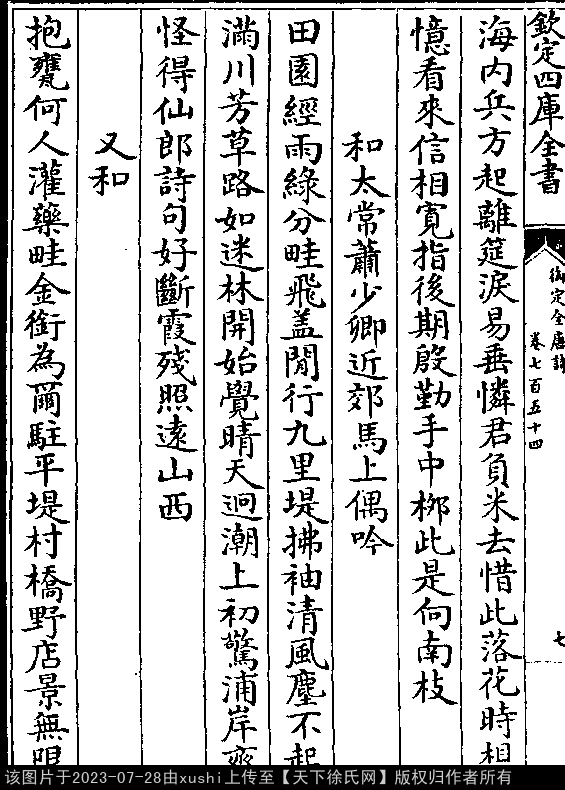 欽定四庫全書
御定全唐詩
卷七百五十四
七
海内兵方起離筵淚易垂憐君負米去惜此落花時相
憶看來信相寛指後期殷勤手中栁此是向南枝
和太常蕭少卿近郊馬上偶吟
田園經雨綠分畦飛盖閒行九里堤拂袖清風塵不起
滿川芳草路如迷林開始覺晴天逈潮上初驚浦岸齊
怪得仙郎詩句好斷霞殘照遠山西
又和
抱甕何人灌藥畦金銜為爾駐平堤村橋野店景無限
该图片于2023-07-28由xushi上传至【天下徐氏网】版权归作者所有